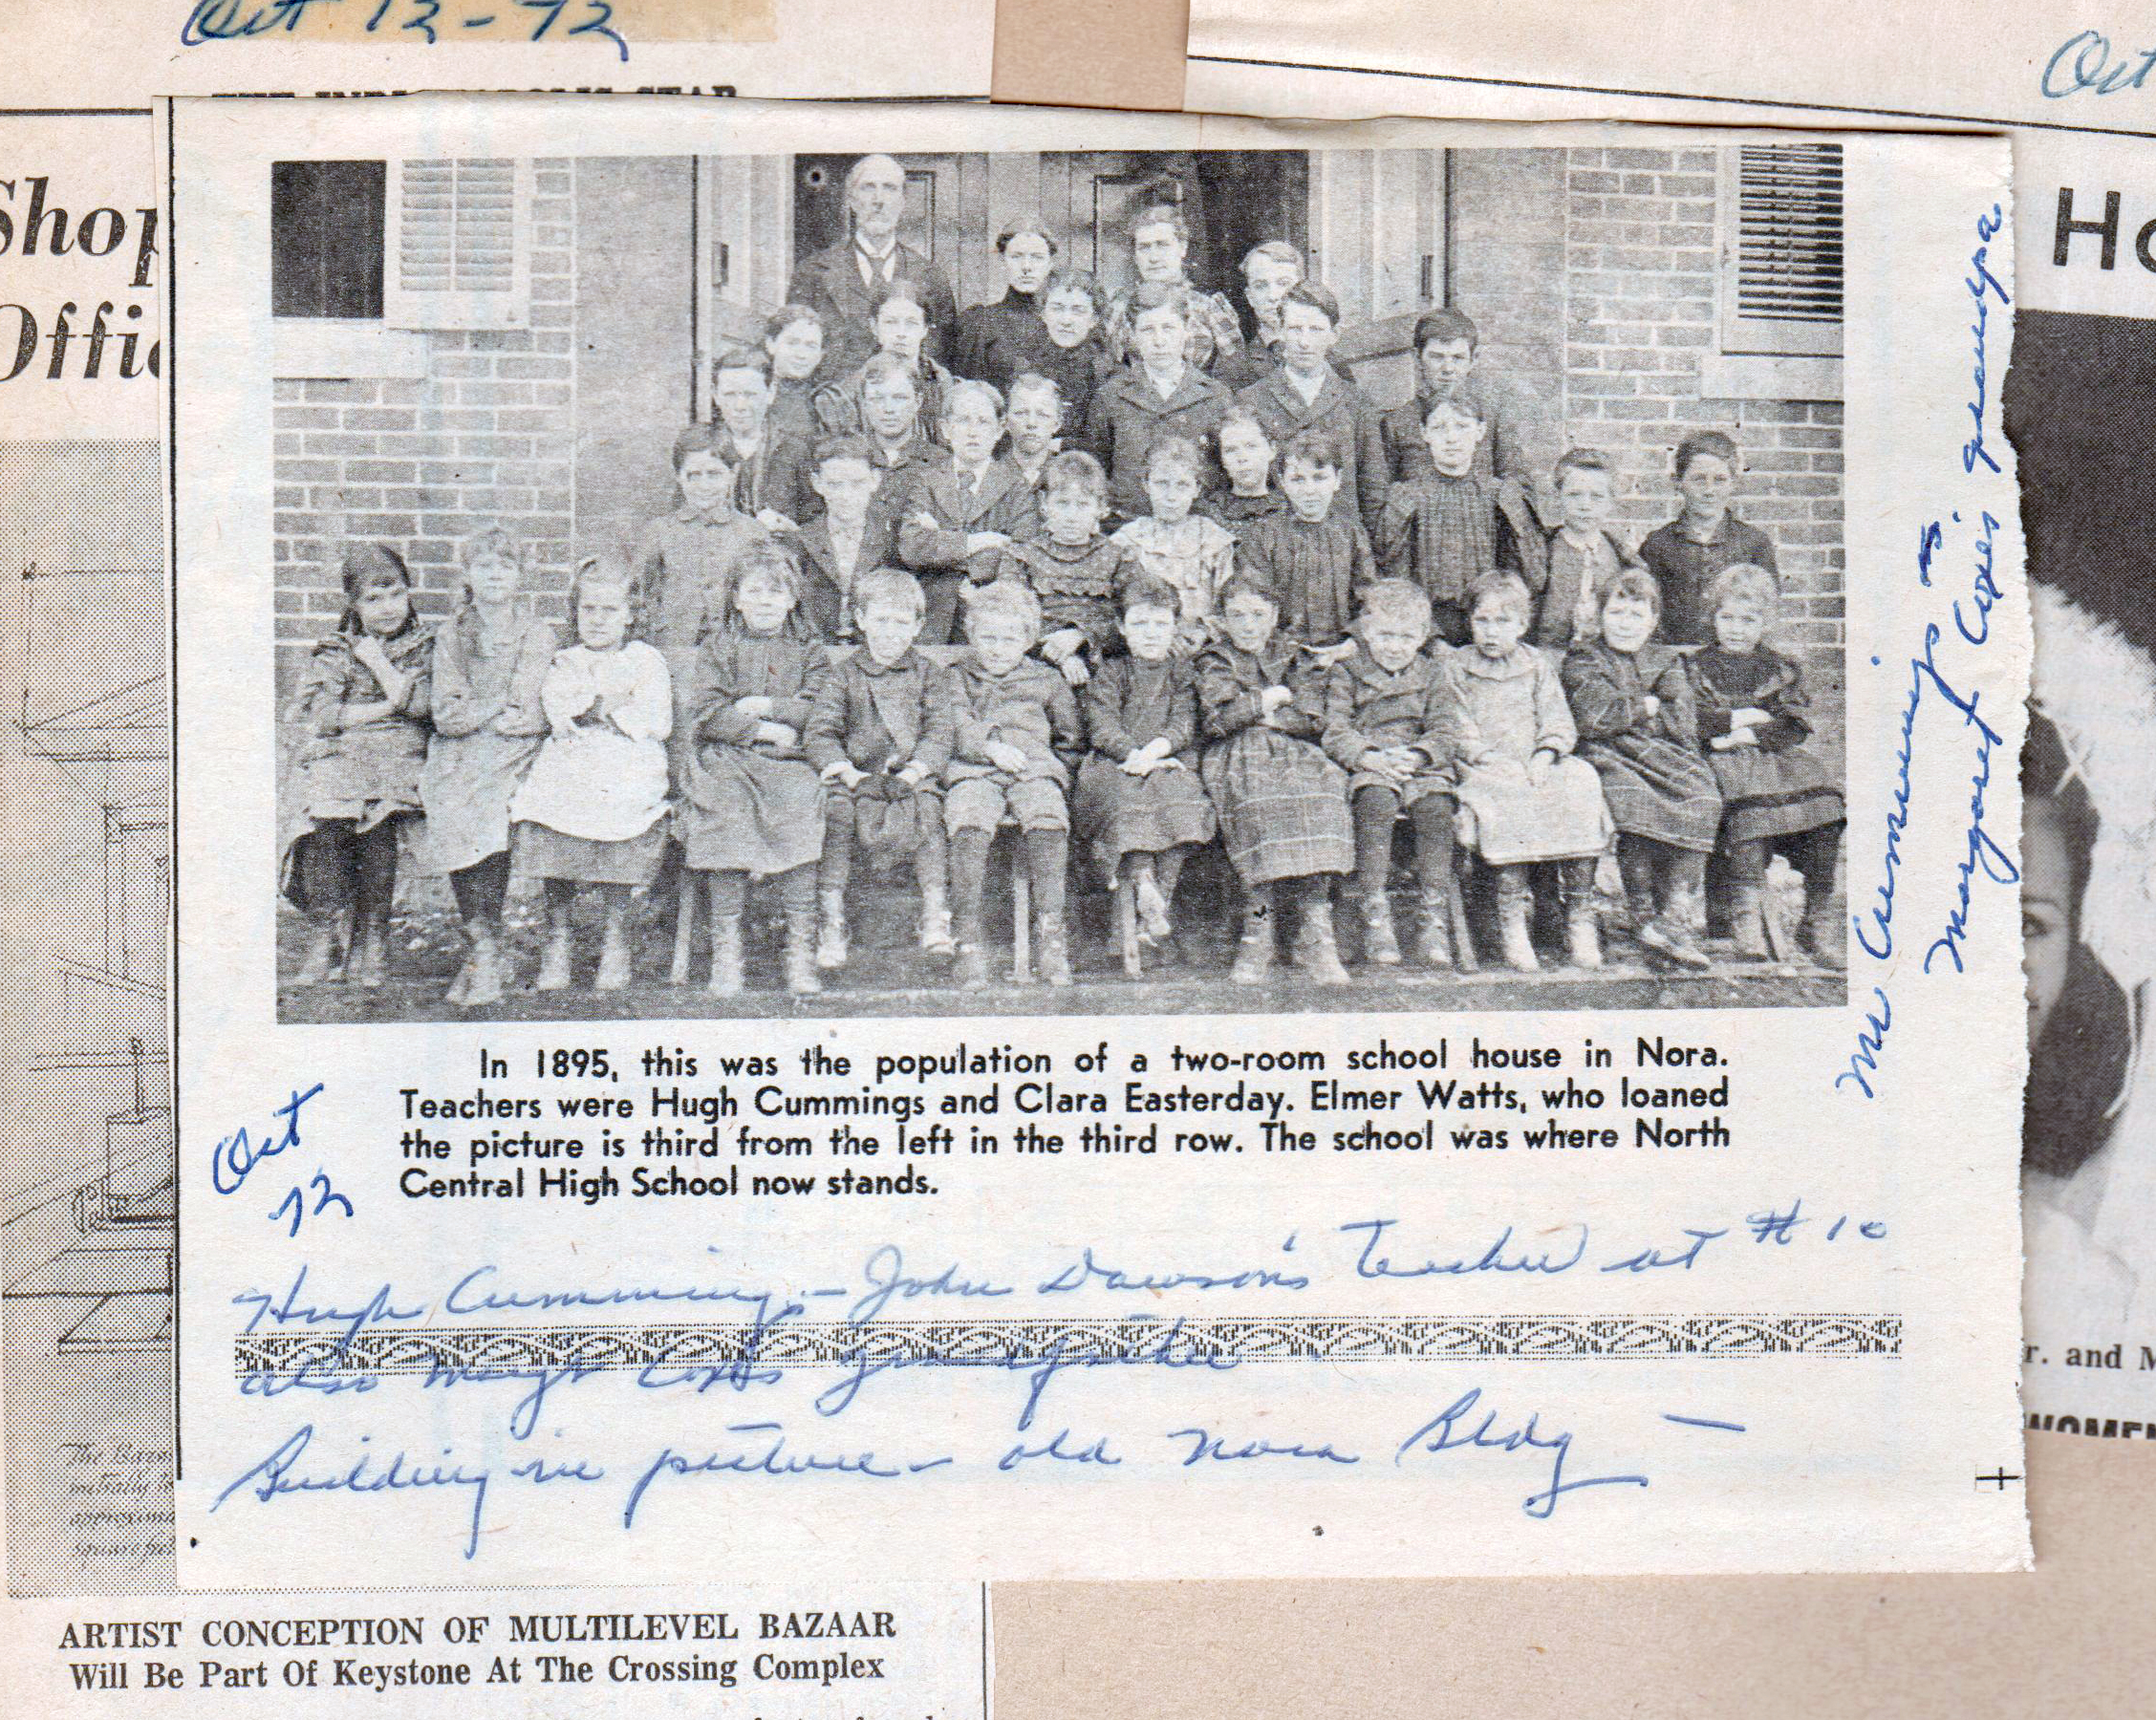 Oct 12-72
Oct
THE INDIANAPOLIS STAR
Shop
Offic
Ho
Mr Cummings -
Margaret Cox's grandpa
In 1895, this was the population of a two-room school house in Nora.
Teachers were Hugh Cummings and Clara Easterday. Elmer Watts, who loaned
the picture is third from the left in the third row. The school was where North
Central High School now stands.
Oct
72
Hugh Cummings - John Dawson's Teacher at # 10
also Marg Cox's grandfather
Building in picture - old Nora Bldg -
r. and M
WOMEN
The Bazaa
initially
approxima
square fee
ARTIST CONCEPTION OF MULTILEVEL BAZAAR
Will Be Part Of Keystone At The Crossing Complex